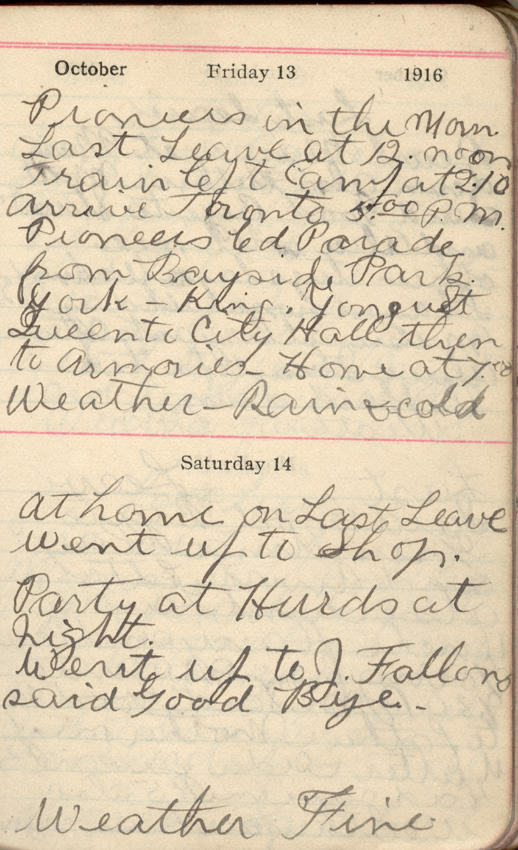 October Friday 13 1916
Pioneers in the Morn.
Last Leave at 12. noon
Train left Camp at 2.10
arrive Toronto 5.00 P.M.
Pioneers led Parade
from Bayside Park.
York - King. Yonge St
Queen to City Hall then
to Armories - Home at 7.00
Weather - Rain & cold
Saturday 14
at home on Last Leave
went up to Shop.
Party at Hurds at
Night.
Went up to J. Fallons
said Good Bye. -
Weather Fine